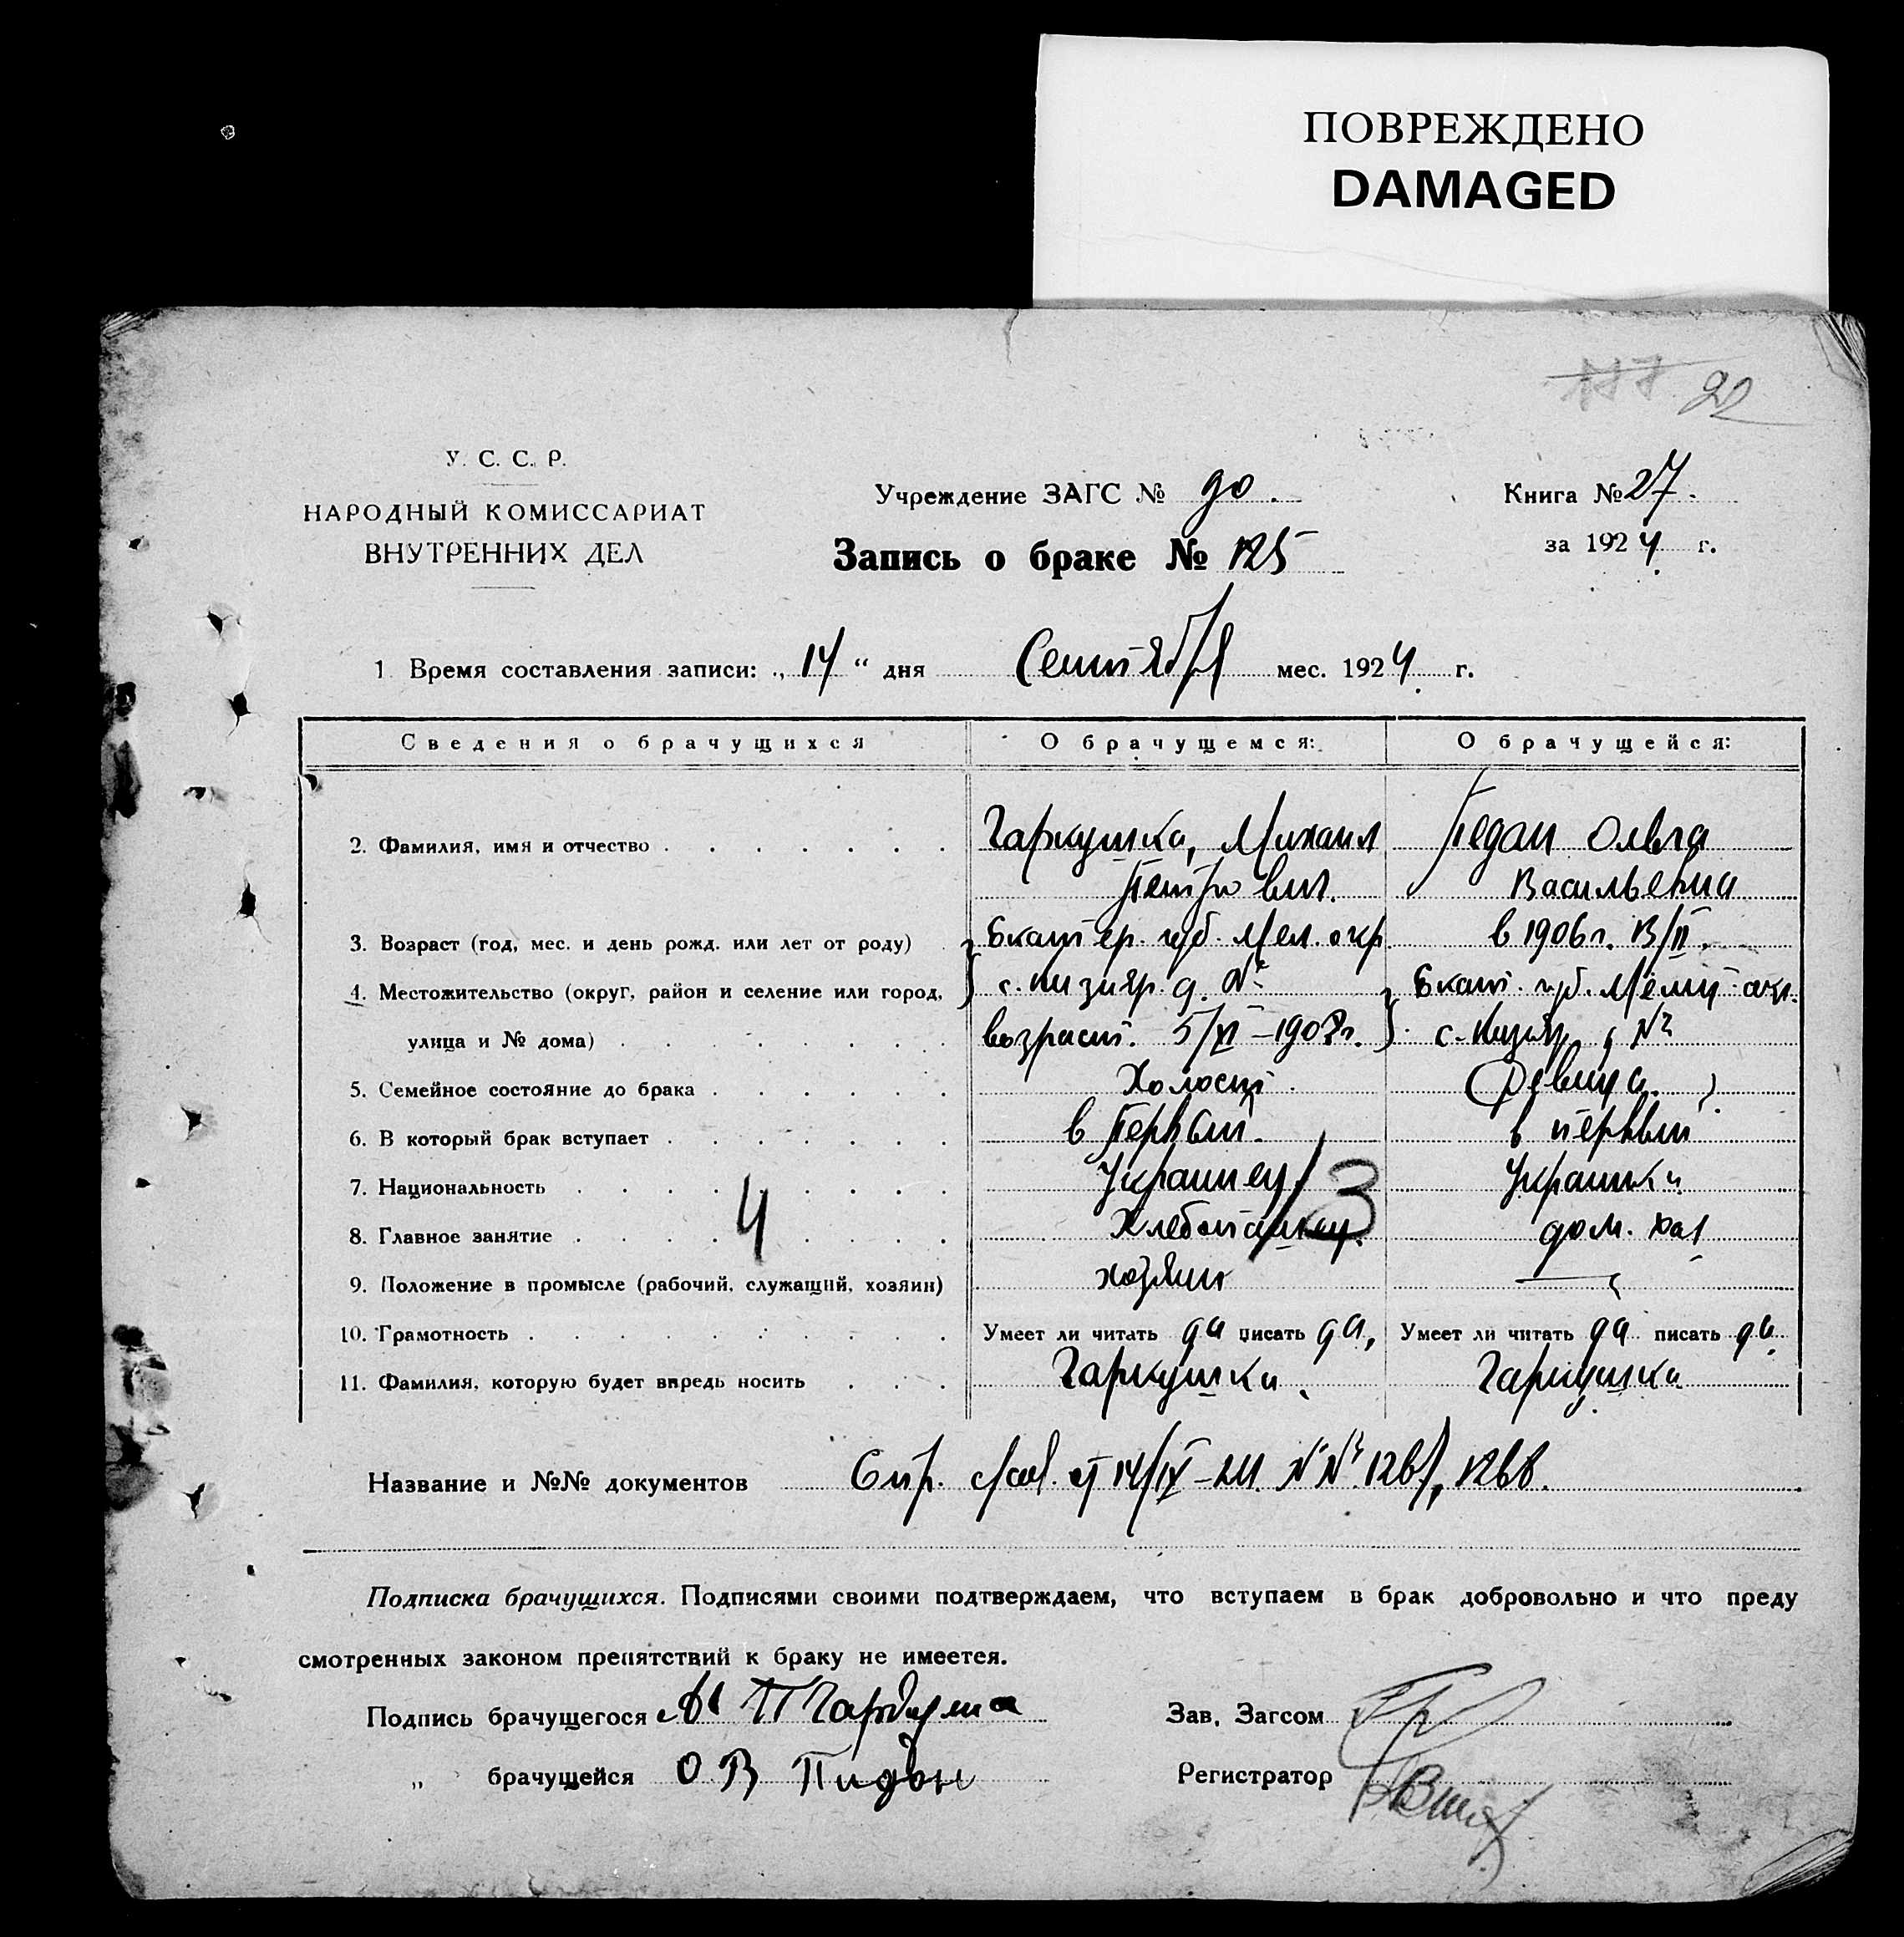 ПОВРЕЖДЕНО
DAMAGED
У. С. С. Р.
НАРОДНЫЙ КОМИССАРИАТ
ВНУТРЕННИХ ДЕЛ
Учреждение ЗАГС №
Книга № 27.
Запись о браке № 125
за 1924 г.
1 Время составления записи: „ 14 “ дня Сентября мес. 1924 г.
Сведения о брачущихся О брачущемся: О брачущейся:
2. Фамилия, имя и отчество Гаркушка, Михаил Педан Ольга
Петрович. Васильевна
3. Возраст (год, мес. и день рожд. или лет от роду) Екатер. губ. Мел. окр. в 1906 г. 13/II.
4. Местожительство (округ, район и селение или город, с. д. № Екат. губ. окр.
улица и № дома) возраст. 5/XI – г. с. №
5. Семейное состояние до брака Холост. Девица
6. В который брак вступает в Первый. в первый
7. Национальность Украинец Украинка
8. Главное занятие Хлебопашец. дом. хоз
9. Положение в промысле (рабочий, служащий, хозяин) хозяин —
10. Грамотность Умеет ли читать да писать да, Умеет ли читать да писать да.
11. Фамилия, которую будет впредь носить Гаркушка. Гаркушка
4
3
Название и №№ документов 14/IX – 24 №№
Подписка брачущихся. Подписями своими подтверждаем, что вступаем в брак добровольно и что преду
смотренных законом препятствий к браку не имеется.
Подпись брачущегося М П Зав. Загсом
„ брачущейся О В Регистратор